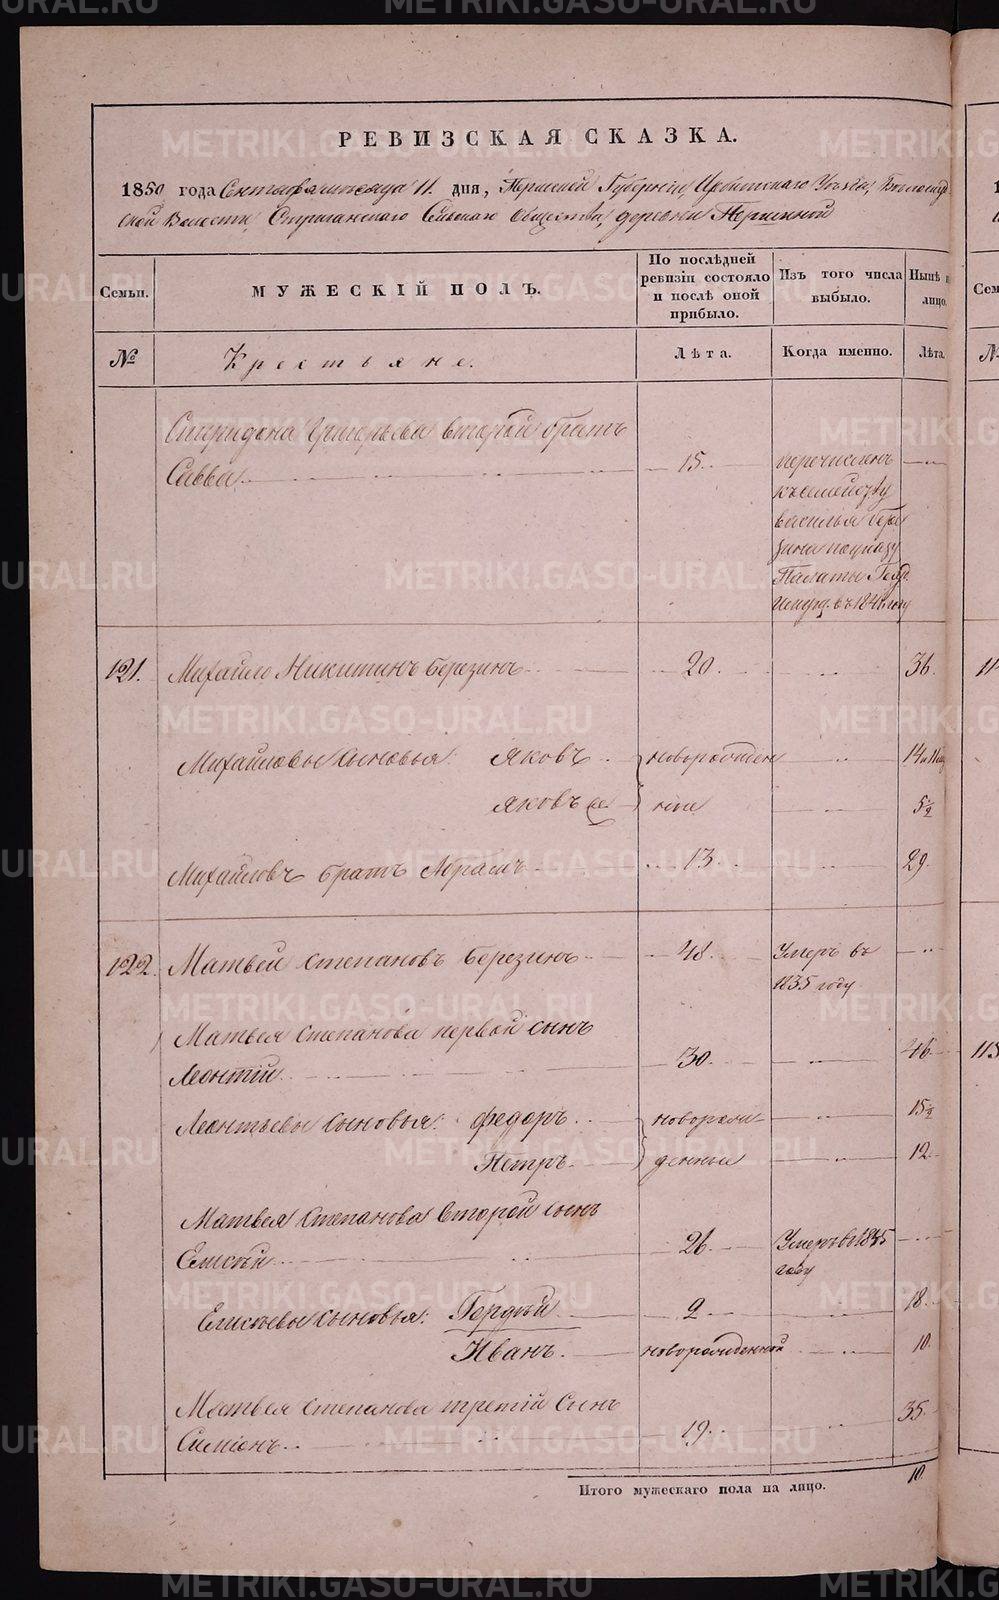 РЕВИЗСКАЯ СКАЗКА.
1850 года Сентября месяца 11. дня, Пермской Губернiи, Ирбитскаго Уѣзда,
ской Волости, Стриганскаго Сельскаго общества, деревни Першиной
Семьи. МУЖЕСКІЙ ПОЛЪ. По послѣдней ревизіи состояло и послѣ оной прибыло. Изъ того числа выбыло. Нынѣ на лицо.
№ Крестьяне. Лѣта. Когда именно. Лѣта.
Спиридона Григорьева второй братъ
Савва 15. перечисленъ
къ семейству
василья бере
зина по указу
Палаты Госуд.
въ 184 году
121. Михайло Никитинъ березинъ 20. 36.
Михайловы сыновья: Яковъ новорожден 14
яковъ же ные 5½
Михайловъ братъ Абрамъ 13. 29.
122. Матвей степановъ березинъ 48. Умеръ въ
1835 году
Матвея степанова первой сынъ
Леонтій 30. 46.
Леонтьевы сыновья: федоръ новорож 15½
Петръ денные 12
Матвея степанова второй сынъ
Елисѣй 26. Умеръ въ 1845
году
Елисѣевы сыновья: Гордѣй 2 18.
Иванъ новорожденной 10.
Матвея степанова третій сынъ
Симіонъ 19. 35.
Итого мужескаго пола на лицо. 10.
METRIKI.GASO-URAL.RU